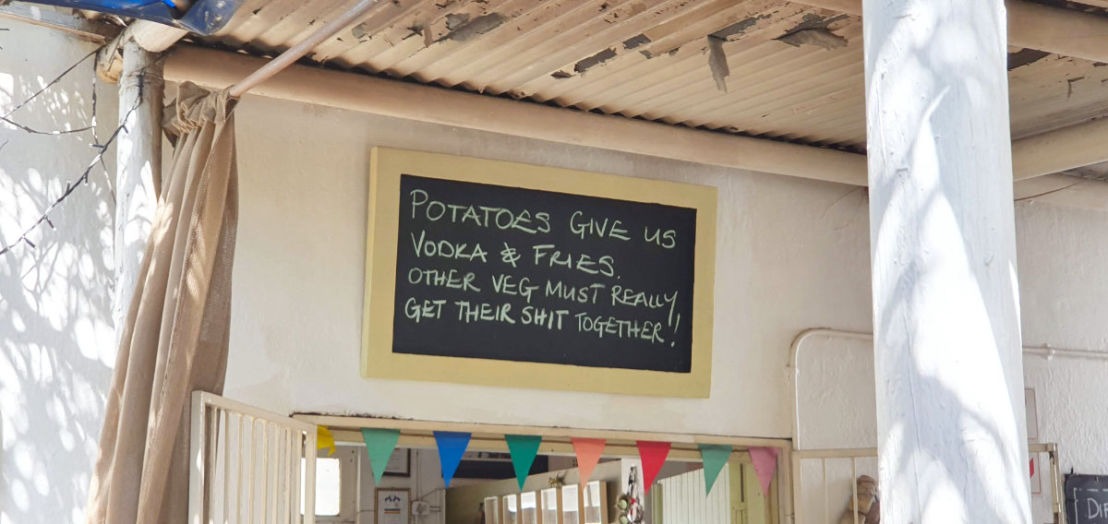 POTATOES GIVE US
VODKA & FRIES.
OTHER VEG MUST REALLY
GET THEIR SHIT TOGETHER!!